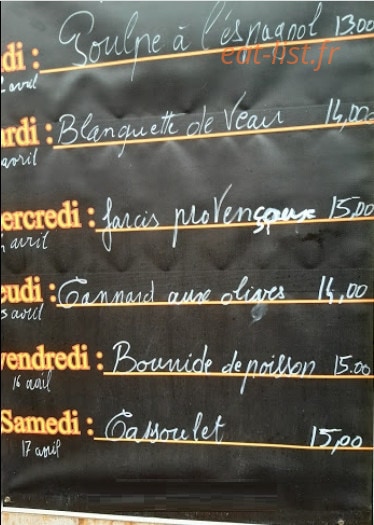 di : Poulpe à l'espagnol 13.00
avril
eat-list.fr
ardi : Blanquette de Veau 14,00
avril
ercredi : farcis provençaux 15,00
avril
eudi : Cannard aux olives 14,00
avril
vendredi : Bourride de poisson 15.00
16 avril
Samedi : Cassoulet 15,00
17 avril